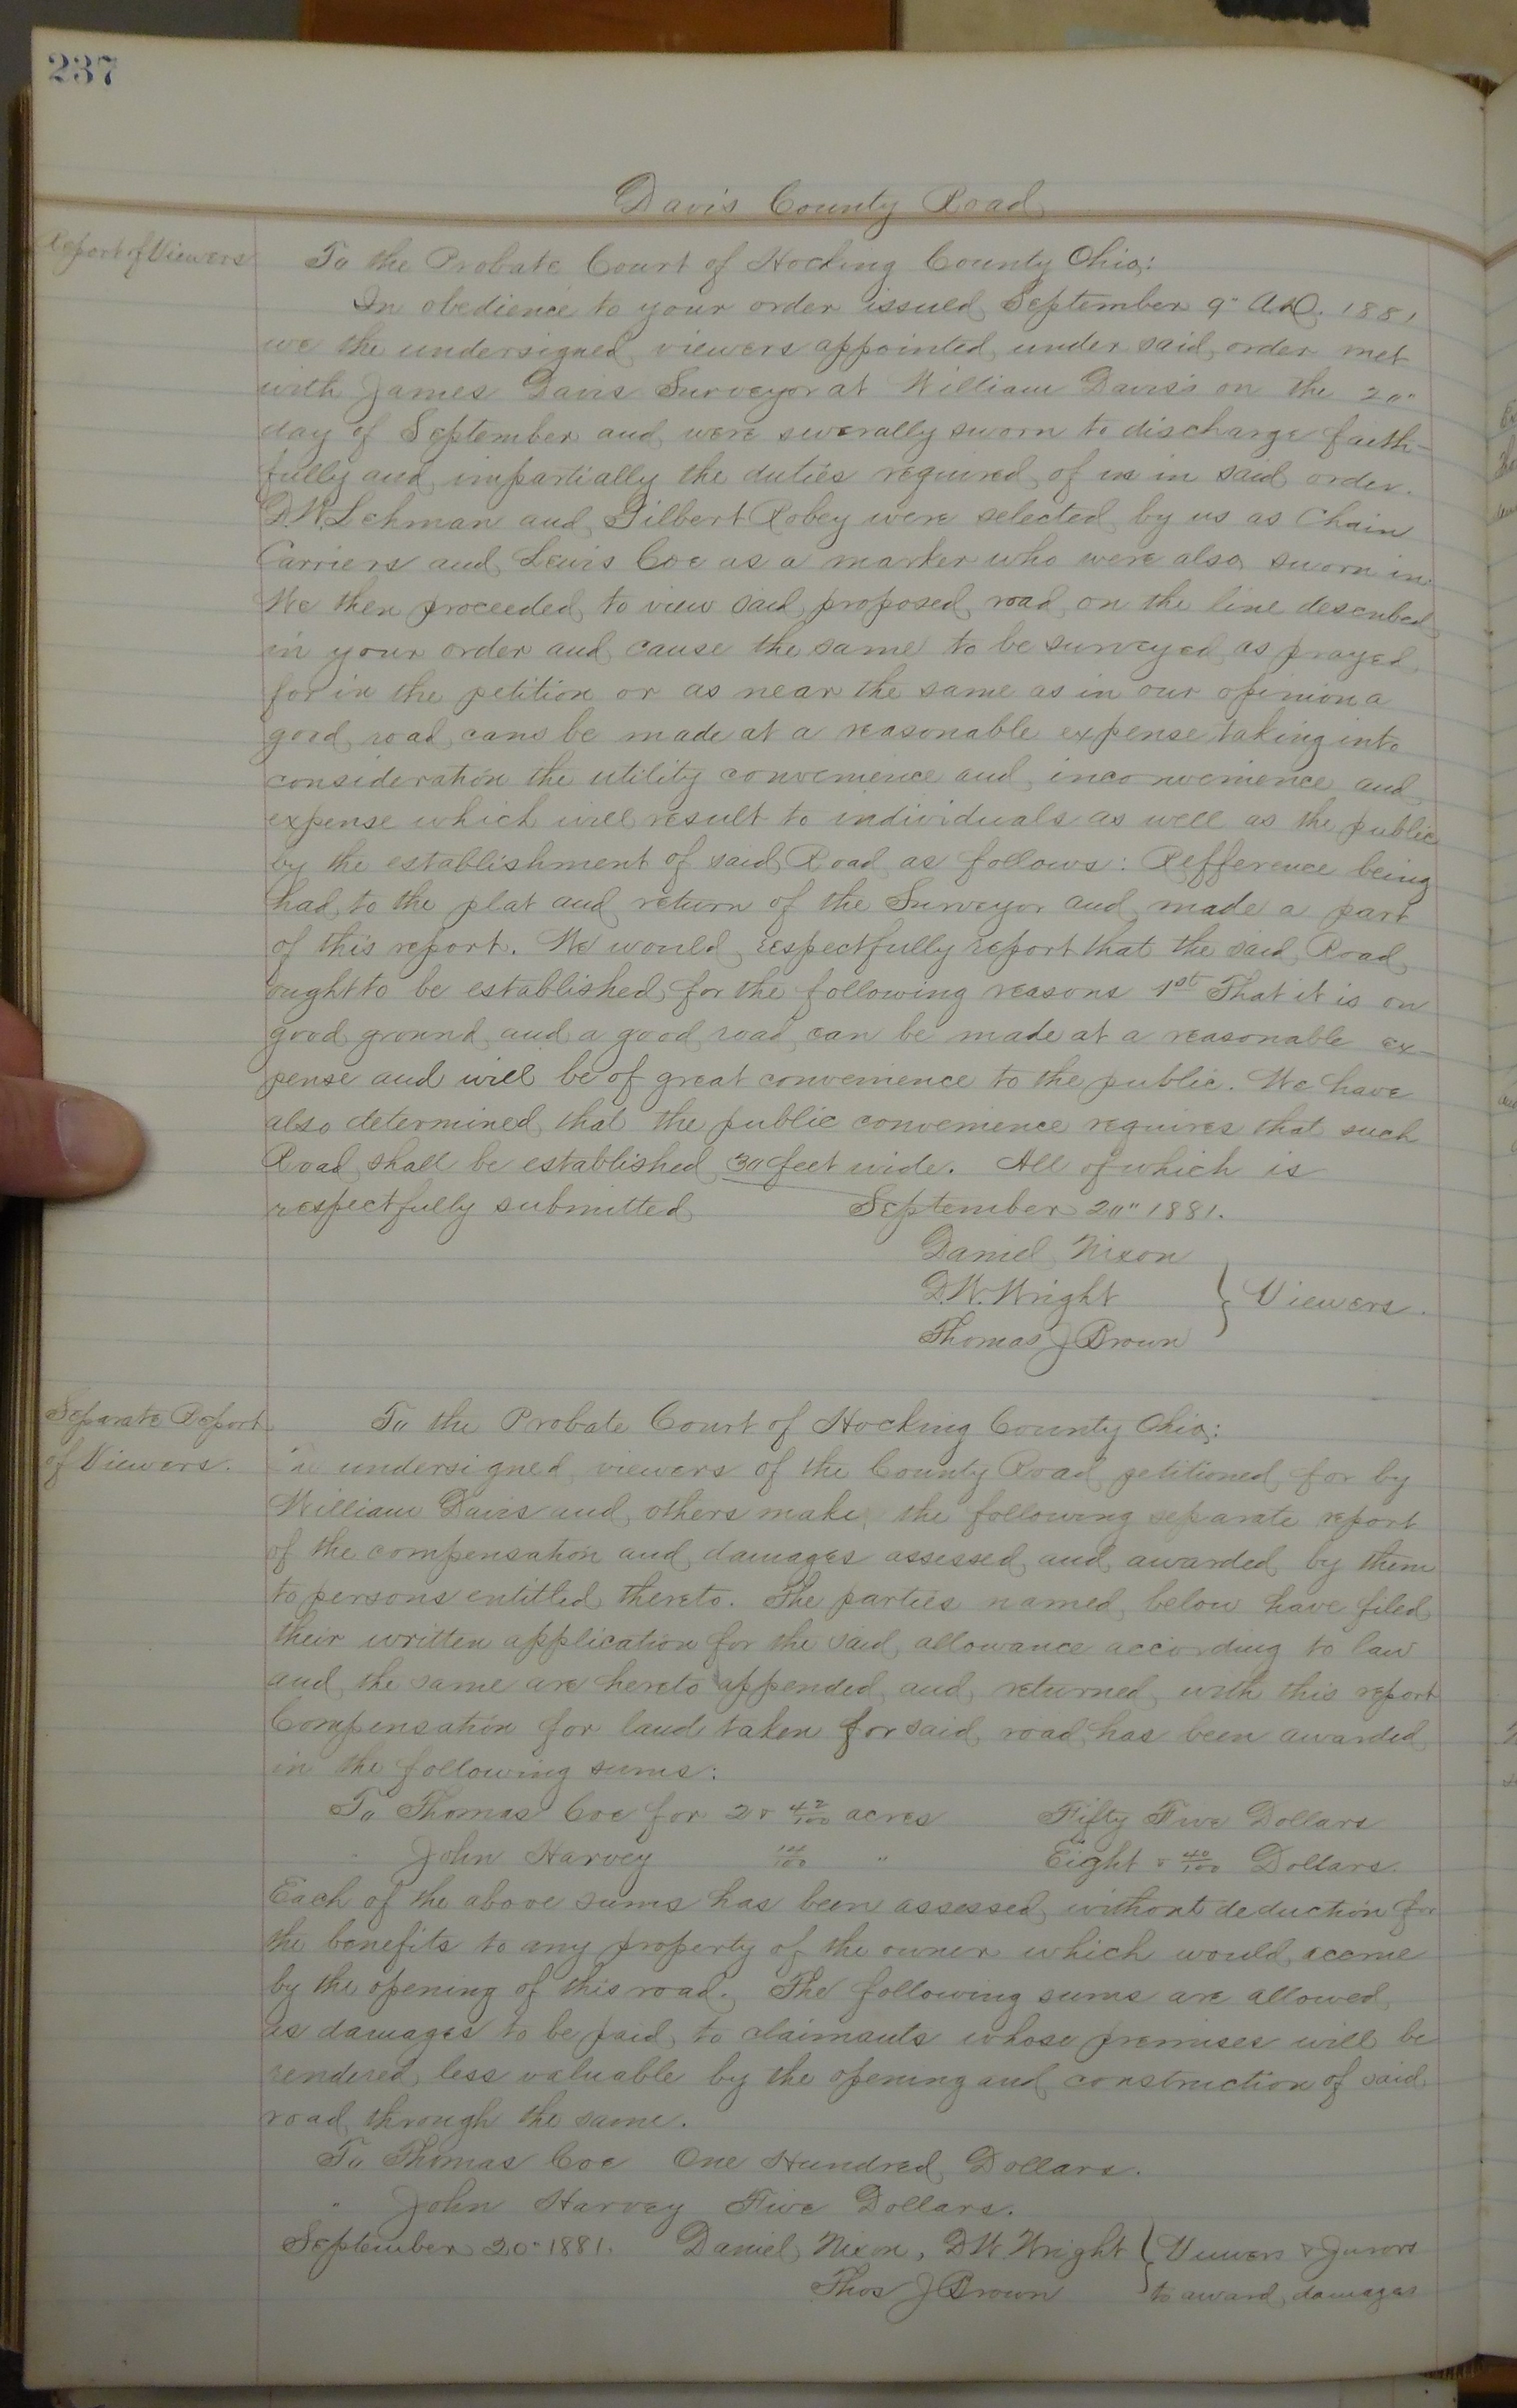 237
Davis County Road
Report of Viewers
To the Probate Court of Hocking County Ohio:
In obedience to your order issued September 9" A.D. 1881
we the undersigned viewers appointed under said order met
with James Davis Surveyor at William Davis's on the 20"
day of September and were severally sworn to discharge faith-
fully and impartially the duties required of us in said order.
D.W. Lehman and Gilbert Robey were selected by us as Chain
Carriers and Lewis Coe as a marker who were also sworn in.
We then proceeded to view said proposed road on the line described
in your order and cause the same to be surveyed as prayed
for in the petition or as near the same as in our opinion a
good road can be made at a reasonable expense taking into
consideration the utility convenience and inconvenience and
expense which will result to individuals as well as the public
by the establishment of said Road as follows: Refference being
had to the plat and return of the Surveyor and made a part
of this report. We would respectfully report that the said Road
ought to be established for the following reasons 1st That it is on
good ground and a good road can be made at a reasonable ex-
pense and will be of great convenience to the public. We have
also determined that the public convenience requires that such
Road shall be established 30 feet wide. All of which is
respectfully submitted September 20" 1881.
Daniel Nixon
D.W. Wright } Viewers.
Thomas J Brown
Separate Report
of Viewers.
To the Probate Court of Hocking County Ohio:
undersigned viewers of the County Road petitioned for by
William Davis and others make the following separate report
of the compensation and damages assessed and awarded by them
to persons entitled thereto. The parties named below have filed
their written application for the said allowance according to law
and the same are hereto appended and returned with this report
Compensation for land taken for said road has been awarded
in the following sums:
To Thomas Coe for 2 & 42/100 acres Fifty Five Dollars
" John Harvey /100 " Eight & 40/100 Dollars.
Each of the above sums has been assessed without deduction for
the benefits to any property of the owner which would accrue
by the opening of this road. The following sums are allowed
as damages to be paid to claimants whose premises will be
rendered less valuable by the opening and construction of said
road through the same.
To Thomas Coe One Hundred Dollars.
" John Harvey Five Dollars.
September 20" 1881. Daniel Nixon, D W Wright } Viewers & Jurors
Thos J Brown to award damages